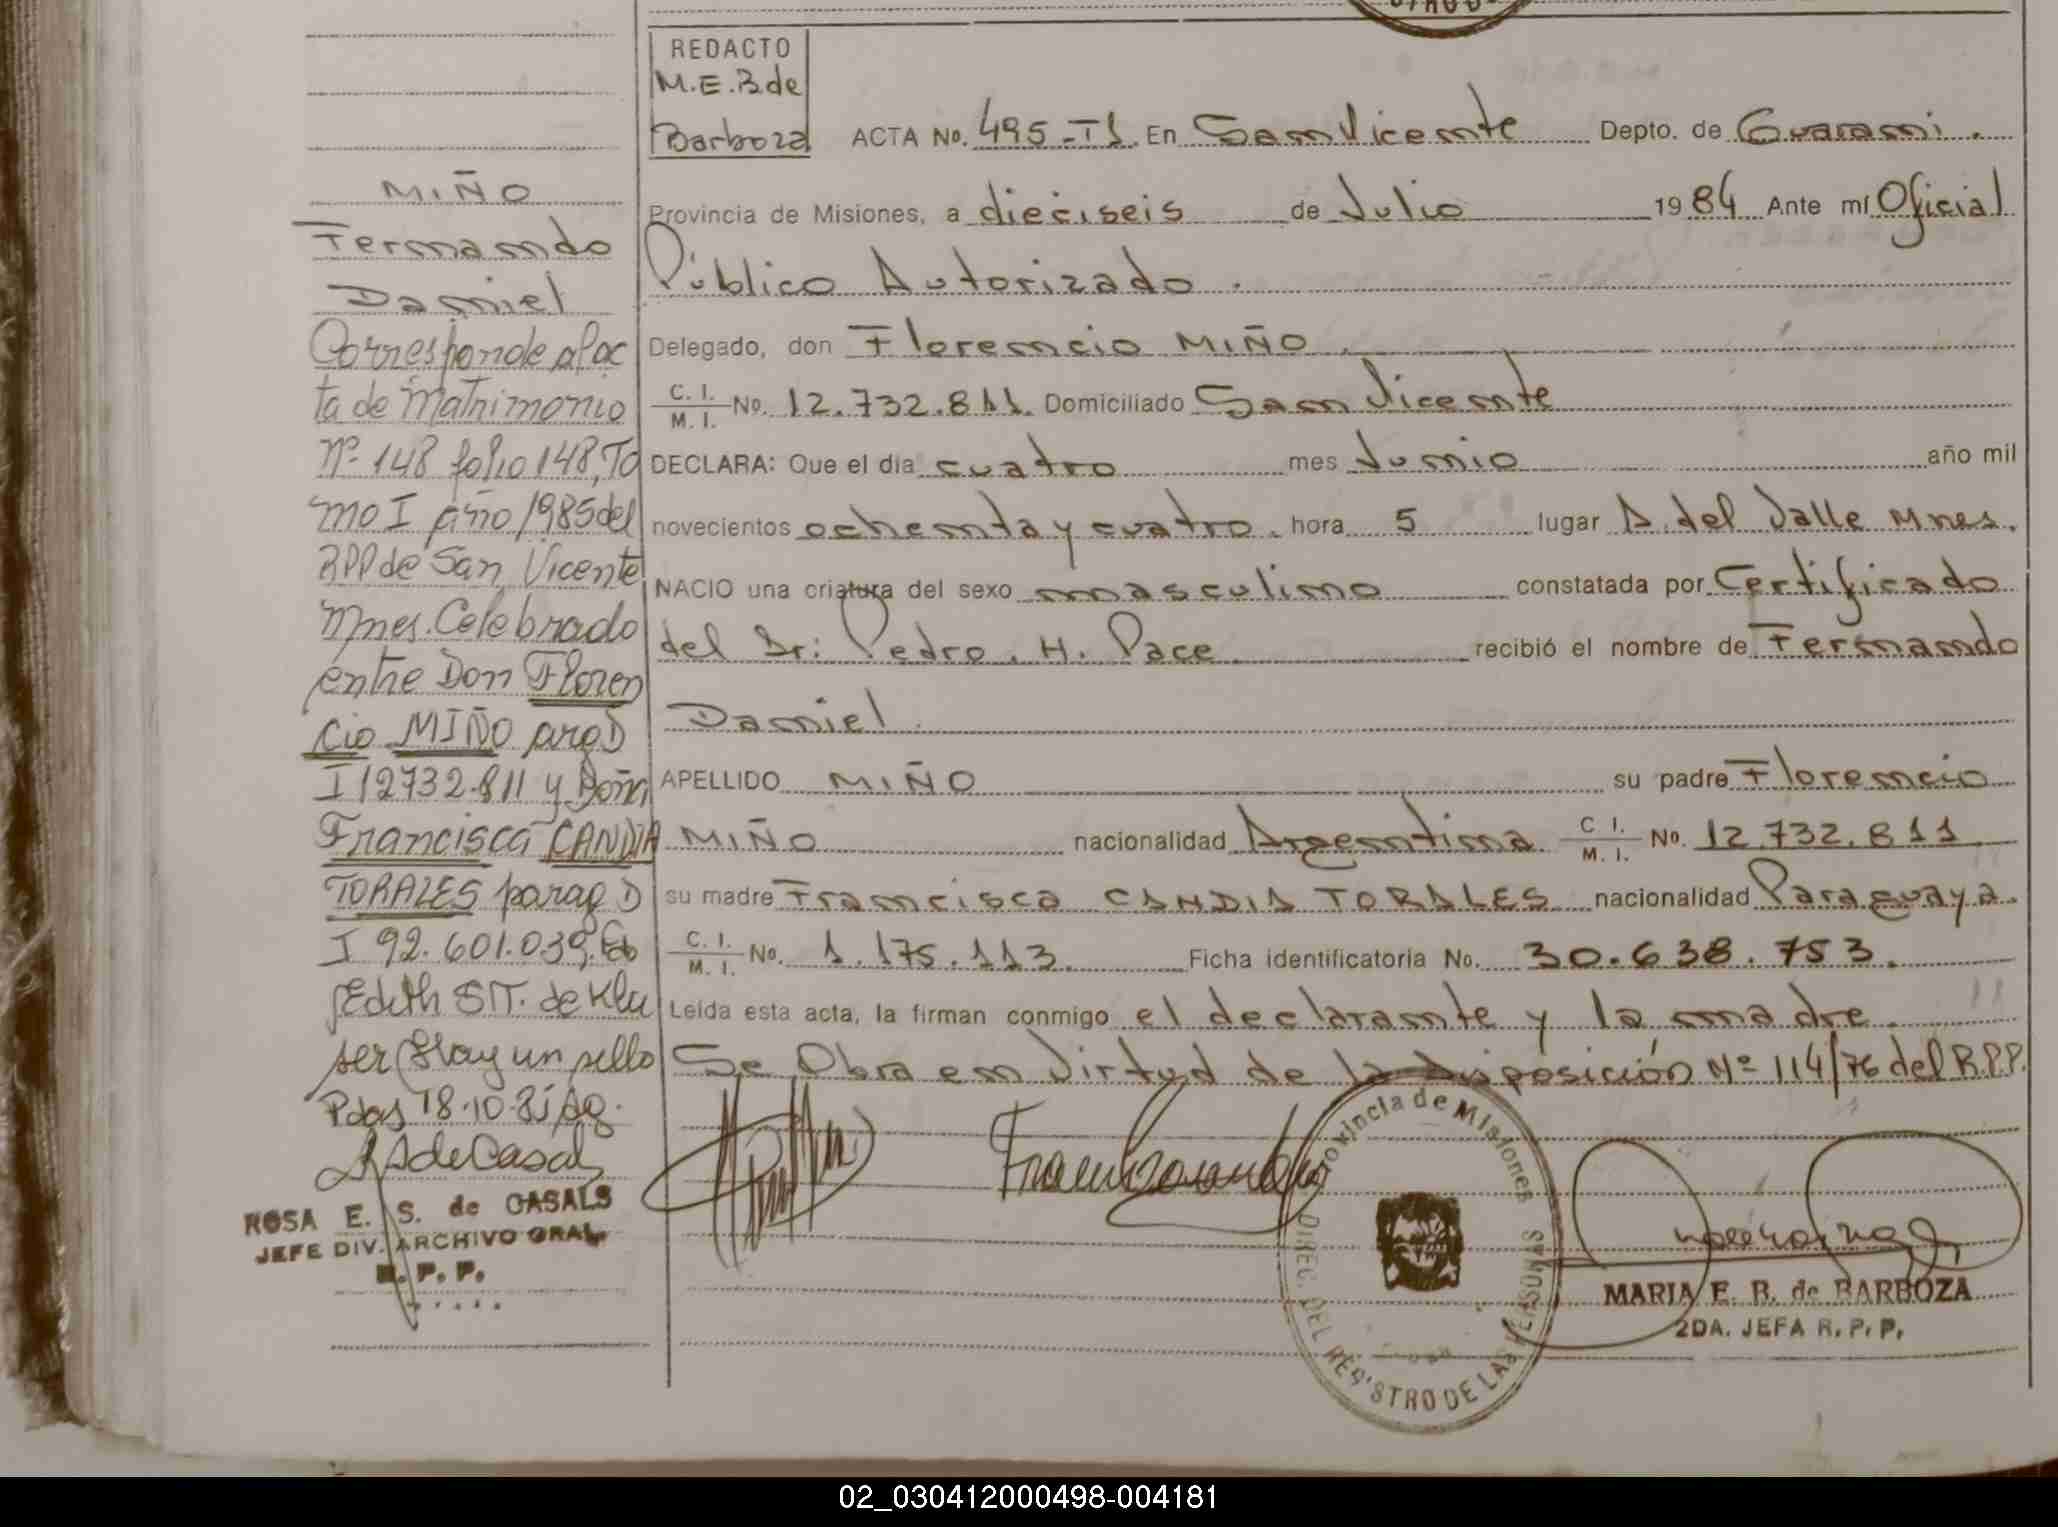 REDACTO
M.E.B de
Barboza
ACTA No. 495-T1. En San Vicente Depto. de Guarani.
Provincia de Misiones, a dieciseis de Julio 1984 Ante mí Oficial
Público Autorizado.
Delegado, don Florencio MIÑO
C. I.
M. I. No. 12.732.811. Domiciliado San Vicente
DECLARA: Que el dia cuatro mes Junio año mil
novecientos ochenta y cuatro. hora 5 lugar A. del Valle Mnes.
NACIO una criatura del sexo masculino constatada por Certificado
del Dr: Pedro. H. Pace recibió el nombre de Fernando
Daniel
APELLIDO MIÑO su padre Florencio
MIÑO nacionalidad Argentina. C I.
M. I. No. 12.732.811
su madre Francisca CANDIA TORALES nacionalidad Paraguaya.
C. I.
M. I. No. 1.175.113. Ficha identificatoria No. 30.638.753.
Leída esta acta, la firman conmigo el declarante y la madre.
Se Obra en Virtud de la Disposición Nº 114/76 del R.P.P.
Provincia de Misiones
DIREC. DEL REGISTRO DE LAS PERSONAS
MARIA E. B. de BARBOZA
2DA. JEFA R. P. P.
MIÑO
Fernando
Daniel
Corresponde al ac
ta de Matrimonio
Nº 148 folio 148, To
mo I año 1985 del
RPP de San Vicente
Mnes. Celebrado
entre Don Floren
cio MIÑO arg D
I 12732.811 y Doña
Francisca CANDIA
TORALES parag D
I 92.601.039.
Edith S.T. de Klu
ser (Hay un sello
Pdas 18.10.85
ROSA E. S. de CASALS
JEFE DIV. ARCHIVO GRAL.
R. P. P.
02_030412000498-004181